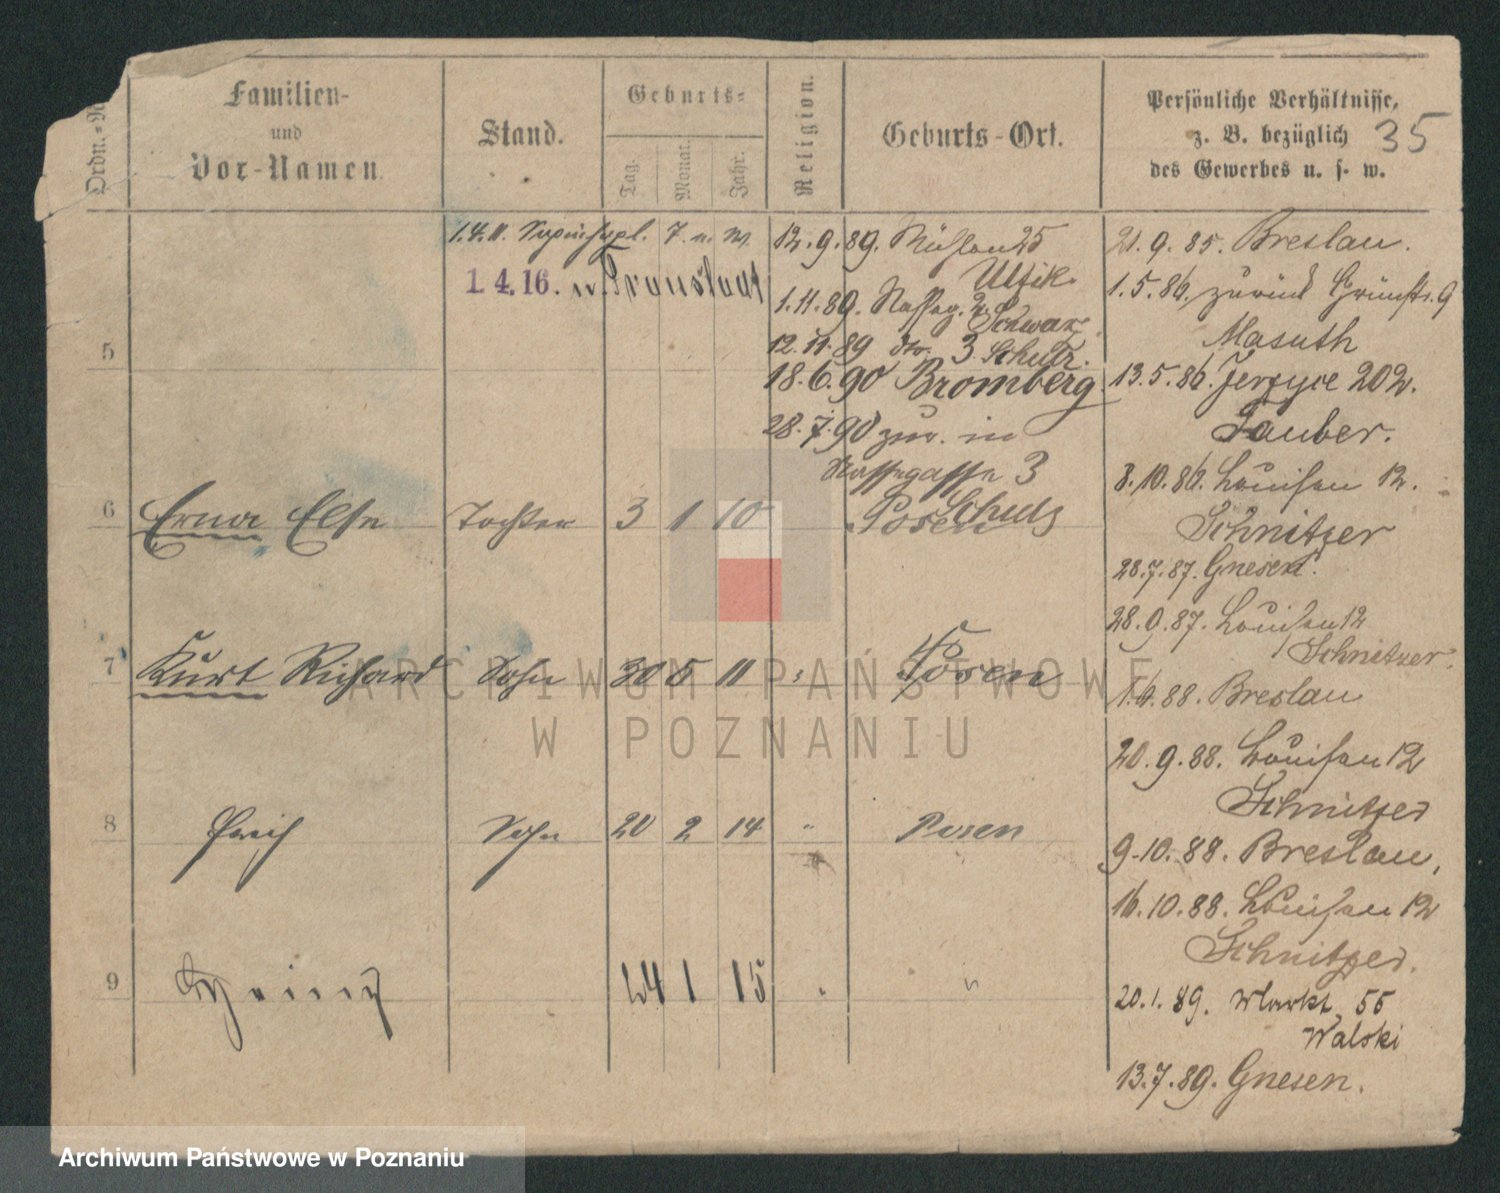 Ordn.-
Familien-
und
Vor-Namen.
Stand.
Geburts-
Tag.
Monat.
Jahr.
Religion.
Geburts-Ort.
Persönliche Verhältnisse,
z. B. bezüglich
des Gewerbes u. s. w.
35
1.4.11.
1.4.16. n. Fraustadt
12.9.89. Mühlen 25
1.11.89.
Schwarz
12.11.89 do. 3 Schulz.
18.6.90 Bromberg
28.7.90 zur. in
Nassegasse 3
Schulz
5
6 Erna Else Tochter 3 1 10 Posen
7 Kurt Richard Sohn 30 5 11 " Posen
8 Erich Sohn 20 2 14 " Posen
9 Heinz 24 1 15 " "
21.9.85. Breslau.
1.5.86. zurück Grünstr. 9
Masuth
13.5.86. Jerzyce 202.
Tauber.
8.10.86. Louisen 12.
Schnitzer
28.7.87. Gnesen.
28.9.87. Louisen 12
Schnitzer.
1.6.88. Breslau
20.9.88. Louisen 12
Schnitzer
9.10.88. Breslau,
16.10.88. Louisen 12
Schnitzer.
20.1.89. Markt 55
Walski
13.7.89. Gnesen.
ARCHIWUM PAŃSTWOWE
W POZNANIU
Archiwum Państwowe w Poznaniu